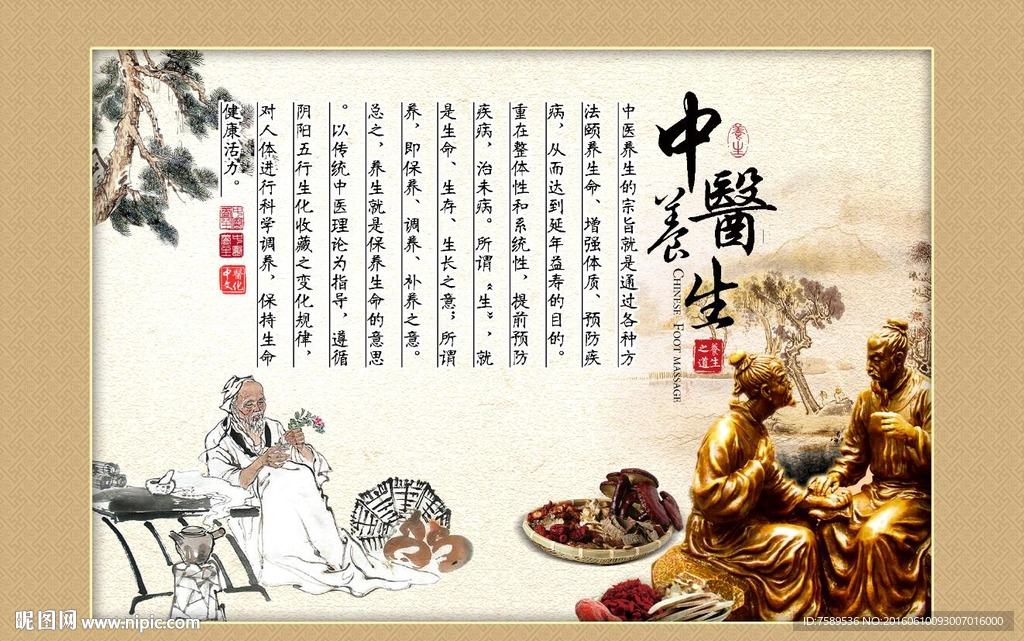 中醫養生
養生
CHINESE FOOT MASSAGE
養生之道
中医养生的宗旨就是通过各种方
法颐养生命、增强体质、预防疾
病，从而达到延年益寿的目的。
重在整体性和系统性，提前预防
疾病，治未病。所谓“生”，就
是生命、生存、生长之意；所谓
养，即保养、调养、补养之意。
总之，养生就是保养生命的意思
。以传统中医理论为指导，遵循
阴阳五行生化收藏之变化规律，
对人体进行科学调养，保持生命
健康活力。
中醫文化
昵图网 www.nipic.com
ID:7589536 NO:20160610093007016000